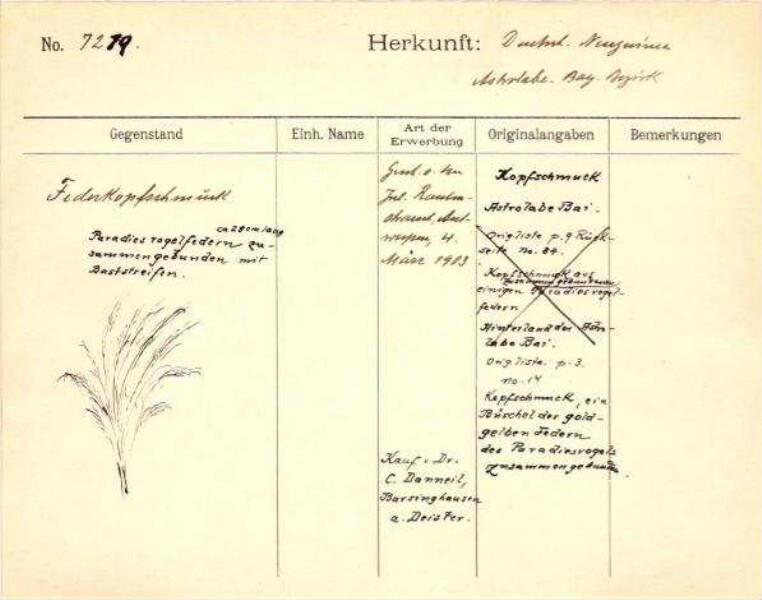 No. 7219.
Herkunft: Deutsch. Neuguinea
Astrolabe-Bay-Bezirk
Gegenstand
Einh. Name
Art der
Erwerbung
Originalangaben
Bemerkungen
Federkopfschmuck
ca 28 cm lang
Paradiesvogelfedern zu-
sammengebunden mit
Baststreifen.
Jul.
4.
März 1903
Kauf v. Dr.
C. Danneil,
Barsinghausen
a. Deister.
Kopfschmuck
Astrolabe Bai.
Origliste p. 9 Rück-
seite no. 84.
Kopfschmuck aus
zusammengebundenen
einigen Paradiesvogel-
federn
Hinterland der Astro-
labe Bai.
Origliste. p. 3.
no. 14
Kopfschmuck, ein
Büschel der gold-
gelben Federn
des Paradiesvogels
zusammengebunden